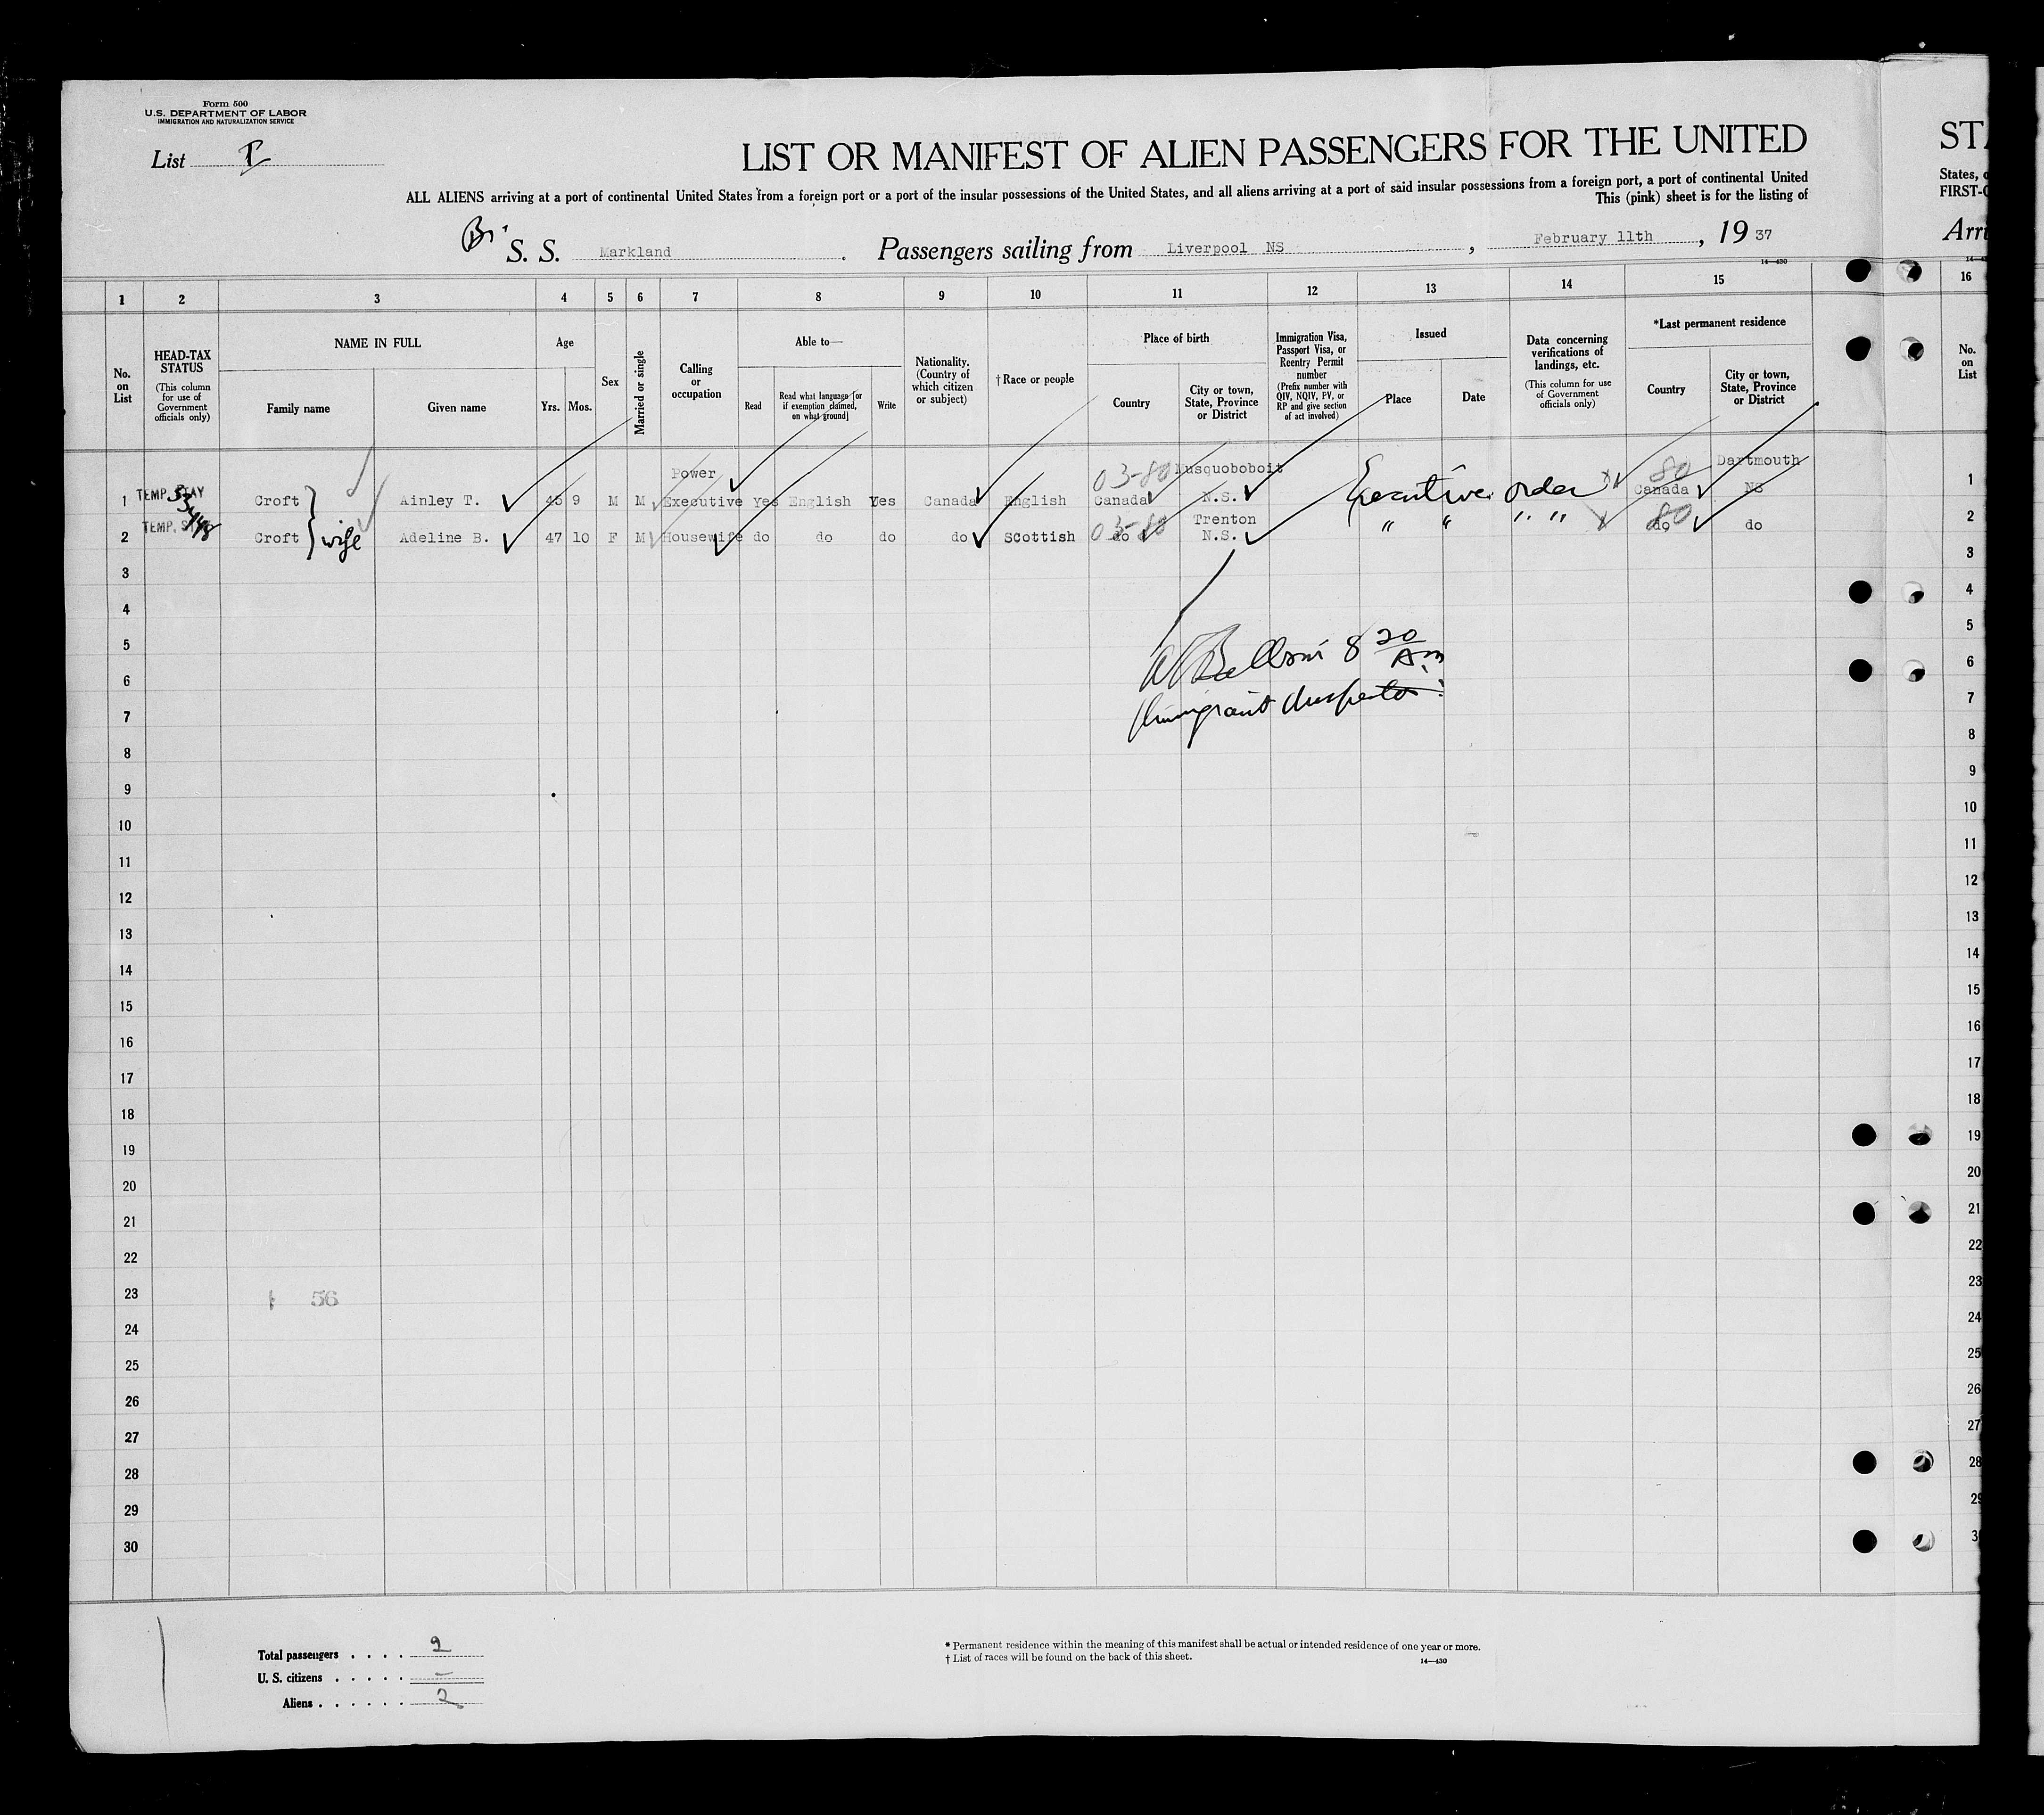 Form 500
U.S. DEPARTMENT OF LABOR
IMMIGRATION AND NATURALIZATION SERVICE
List
LIST OR MANIFEST OF ALIEN PASSENGERS FOR THE UNITED
ALL ALIENS arriving at a port of continental United States from a foreign port or a port of the insular possessions of the United States, and all aliens arriving at a port of said insular possessions from a foreign port, a port of continental United
This (pink) sheet is for the listing of
Br. S. S. Markland. Passengers sailing from Liverpool NS, February 11th, 1937
14—430
1 2 3 4 5 6 7 8 9 10 11 12 13 14 15
No. on List
HEAD-TAX STATUS
(This column for use of Government officials only)
NAME IN FULL
Family name Given name
Age
Yrs. Mos.
Sex
Married or single
Calling or occupation
Able to—
Read
Read what language [or if exemption claimed, on what ground]
Write
Nationality. (Country of which citizen or subject)
†Race or people
Place of birth
Country
City or town, State, Province or District
Immigration Visa, Passport Visa, or Reentry Permit number
(Prefix number with QIV, NQIV, PV, or RP and give section of act involved)
Issued
Place Date
Data concerning verifications of landings, etc.
(This column for use of Government officials only)
*Last permanent residence
Country
City or town, State, Province or District
Power 03-80 Musquoboboit 80 Dartmouth
1 TEMP. STAY Croft Ainley T. 45 9 M M Executive Yes English Yes Canada English Canada N.S. Executive order Canada NS
TEMP. STAY Trenton
2 Croft wife Adeline B. 47 10 F M Housewife do do do do Scottish 03-80 do N.S. " " " " 80 do do
3
4
5
W Bellsni 8 20 Am
6
Immigrant Inspector
7
8
9
10
11
12
13
14
15
16
17
18
19
20
21
22
23
56
24
25
26
27
28
29
30
Total passengers . . . . 2
U. S. citizens . . . . . . –
Aliens . . . . . . 2
* Permanent residence within the meaning of this manifest shall be actual or intended residence of one year or more.
† List of races will be found on the back of this sheet.
14—430
STA
States, o
FIRST-C
Arri
16
No. on List
1
2
3
4
5
6
7
8
9
10
11
12
13
14
15
16
17
18
19
20
21
22
23
24
25
26
27
28
29
3